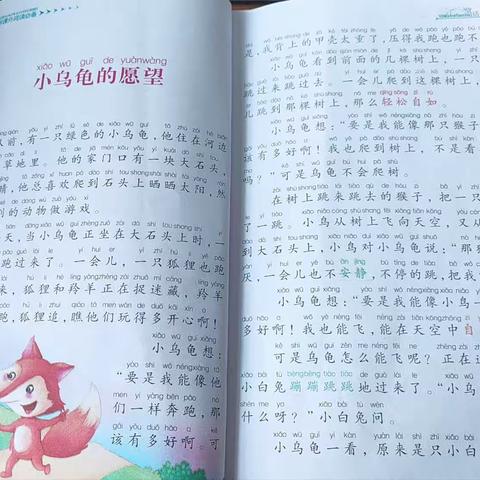 小乌龟的愿望
前，有一只绿色的小乌龟，他住在河边
草地里。他的家门口有一块大石头，
晴，他总喜欢爬到石头上晒晒太阳，然
别的动物做游戏
天，当小乌龟正坐在大石头上时，一
跑过来了。一会儿，一只狐狸也跑
来，狐狸和羚羊正在捉迷藏，羚羊
跑，狐狸追，瞧他们玩得多开心啊！
小乌龟想：
“要是我能像他
们一样奔跑，那
该有多好啊！可
是，我背上的甲壳太重了，压得我跑也跑不
小乌龟看到前面的几棵树上，一只
跳过来跳过去。一会儿爬到这棵树上，
儿跳到那棵树上，那么轻松自如。
小乌龟想：“要是我能像那只猴子
该有多好啊！我也爬到树上，不是看
吗？”可是乌龟不会爬树。
在树上跳来跳去的猴子，把一只
了一跳。小鸟从树上飞向天空，又从
到大石头上，小鸟对小乌龟说：“那猴
厌一会儿也不安静，不停的跳，把我
小乌龟想：“要是我能像小鸟一
多好啊！我也能飞，能在天空中自
可是乌龟怎么能飞呢？正在这
小白兔蹦蹦跳跳地过来了。“小乌
什么呀？”小白兔问。
小乌龟一看，原来是只小白